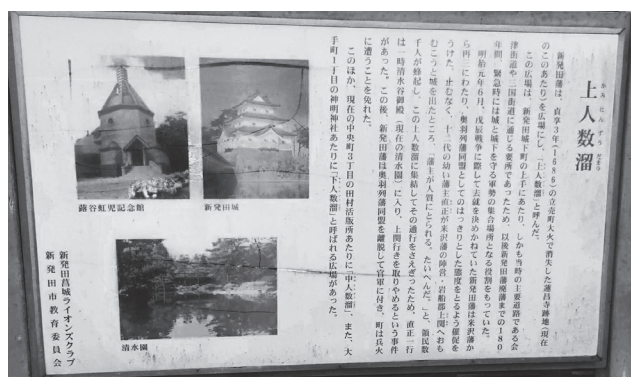 上人数溜
かみ にん ず だまり
新発田藩は、貞享3年(1686)の立売町大火で消失した蓮昌寺跡地(現在
のこのあたり)を広場にし、「上人数溜」と呼んだ。
この広場は、新発田城下町の上手にあたり、しかも当時の主要道路である会
津街道や三国街道に通じる要所であったため、以後新発田藩廃藩までの180
年間、緊急時には城と城下を守る軍勢の集合場所となる役割をもっていた。
明治元年6月、戊辰戦争に際して去就を決めかねていた新発田藩は米沢藩か
ら再三にわたり、奥羽列藩同盟としてのはっきりとした態度をとるよう催促を
うけた。止むなく、十二代の幼い藩主直正が米沢藩の陣営・岩船郡上関へおも
むこうと城を出たところ、「藩主が人質にとられる。たいへんだ。」と、領民数
千人が蜂起し、この上人数溜に集結してその通行をさえぎったため、直正一行
は一時清水谷御殿(現在の清水園)に入り、上関行きを取りやめるという事件
があった。この後、新発田藩は奥羽列藩同盟を離脱して官軍に付き、町は兵火
に遭うことを免れた。
このほか、現在の中央町3丁目の田村活版所あたりに「中人数溜」、また、大
手町1丁目の神明神社あたりに「下人数溜」と呼ばれる広場があった。
新発田城
蕗谷虹児記念館
清水園
新発田菖城ライオンズクラブ
新発田市教育委員会